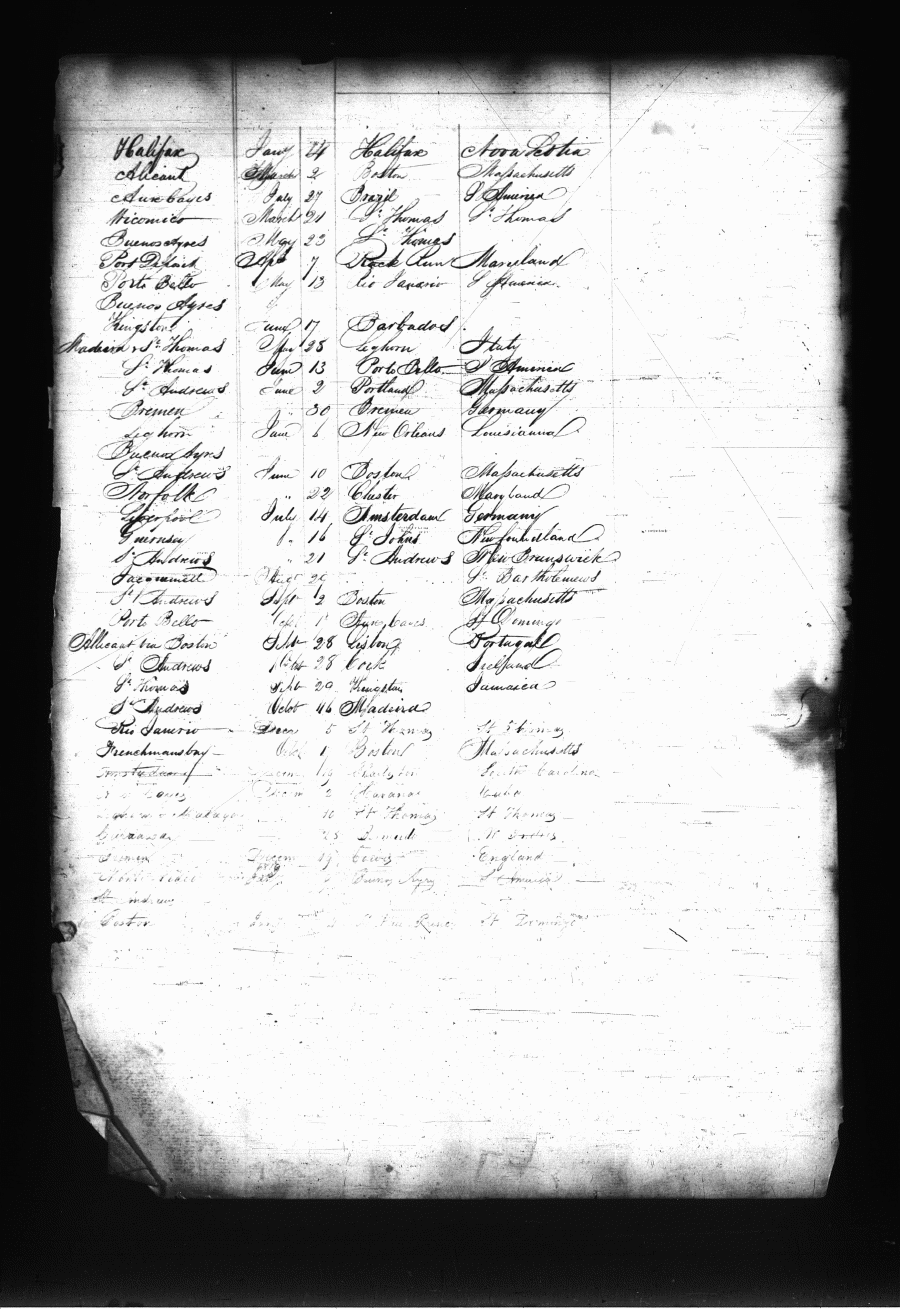 Halifax Jany 24 Halifax Nova Scotia
Alicant March 2 Boston Massachusetts
Aux Cayes July 27 Brazil S. America
Wicomico March 21 St Thomas St Thomas
Buenos Ayres May 23 St Thomas
Port Deposit Apl 7 Rock Run Maryland
Porto Bello May 13 Rio Janario S America
Buenos Ayres
Kingston June 17 Barbadoes
Madeira & St Thomas May 28 Leghorn Italy
St Thomas June 13 Porto Bello S America
St Andrews June 2 Portland Massachusetts
Bremen " 30 Bremen Germany
Leghorn June 6 New Orleans Louisianna
Buenos Ayres
St Andrews June 10 Boston Massachusetts
Norfolk " 22 Chester Maryland
Liverpool July 14 Amsterdam Germany
Guernsey " 16 St Johns Newfoundland
St Andrews " 21 St Andrews New Brunswick
Jacquimell Augt St Bartholemews
St Andrews Sept 2 Boston Massachusetts
Porto Bello 1 St Domingo
Allicant via Boston Sept 28 Lisbon Portugal
St Andrews 28 Cork Ireland
St Thomas Sept 29 Kingston Jamaica
St Andrews Octob 16 Madeira
Rio Janerio Decem 5 St Thomas St Thomas
Frenchmansbay 1 Boston Massachusetts
Amsterdam Decem 19 Charleston South Carolina
Decem 2 Havana Cuba
Malaga 10 St Thomas St Thomas
28
Bremen Decem 19 Cowes England
Buenos Ayres S America
St Andrews
Boston St Domingo